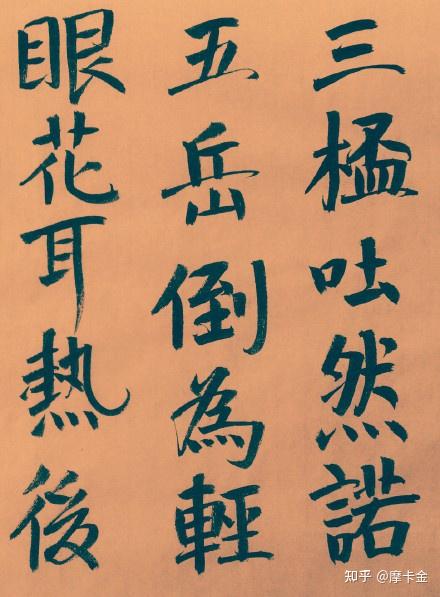 三吐然諾
五岳倒為輕
眼花耳熱後
知乎 @摩卡金